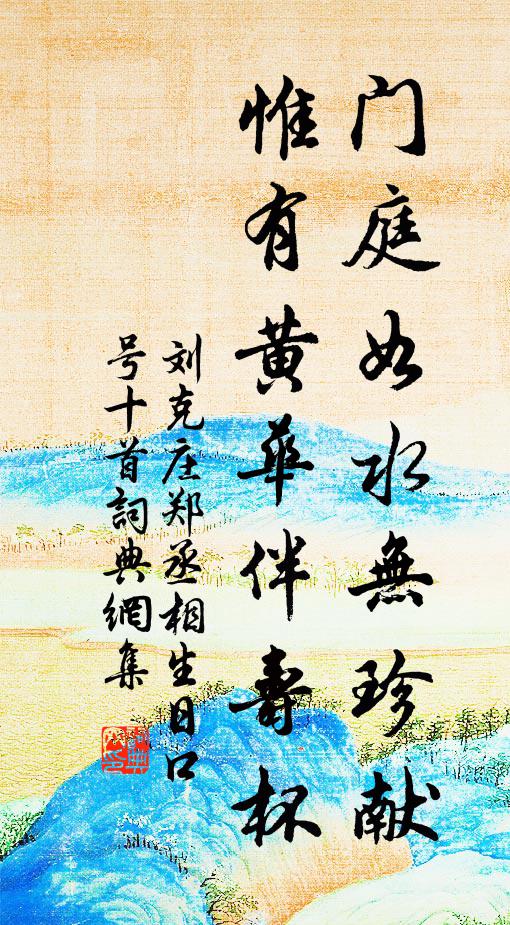 门庭如水無珍献
惟有黄華伴壽杯
刘克庄郑丞相生日口
号十首詞典網集